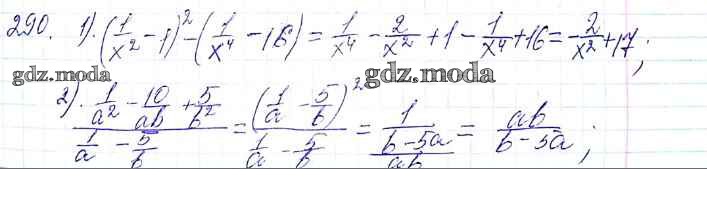 290. 1). (1/x² - 1)² - (1/x⁴ - 16) = 1/x⁴ - 2/x² + 1 - 1/x⁴ + 16 = -2/x² + 17;
gdz.moda gdz.moda
2). (1/a² - 10/ab + 5/b²)/(1/a - 5/b) = (1/a - 5/b)²/(1/a - 5/b) = 1/((b - 5a)/ab) = ab/(b - 5a);